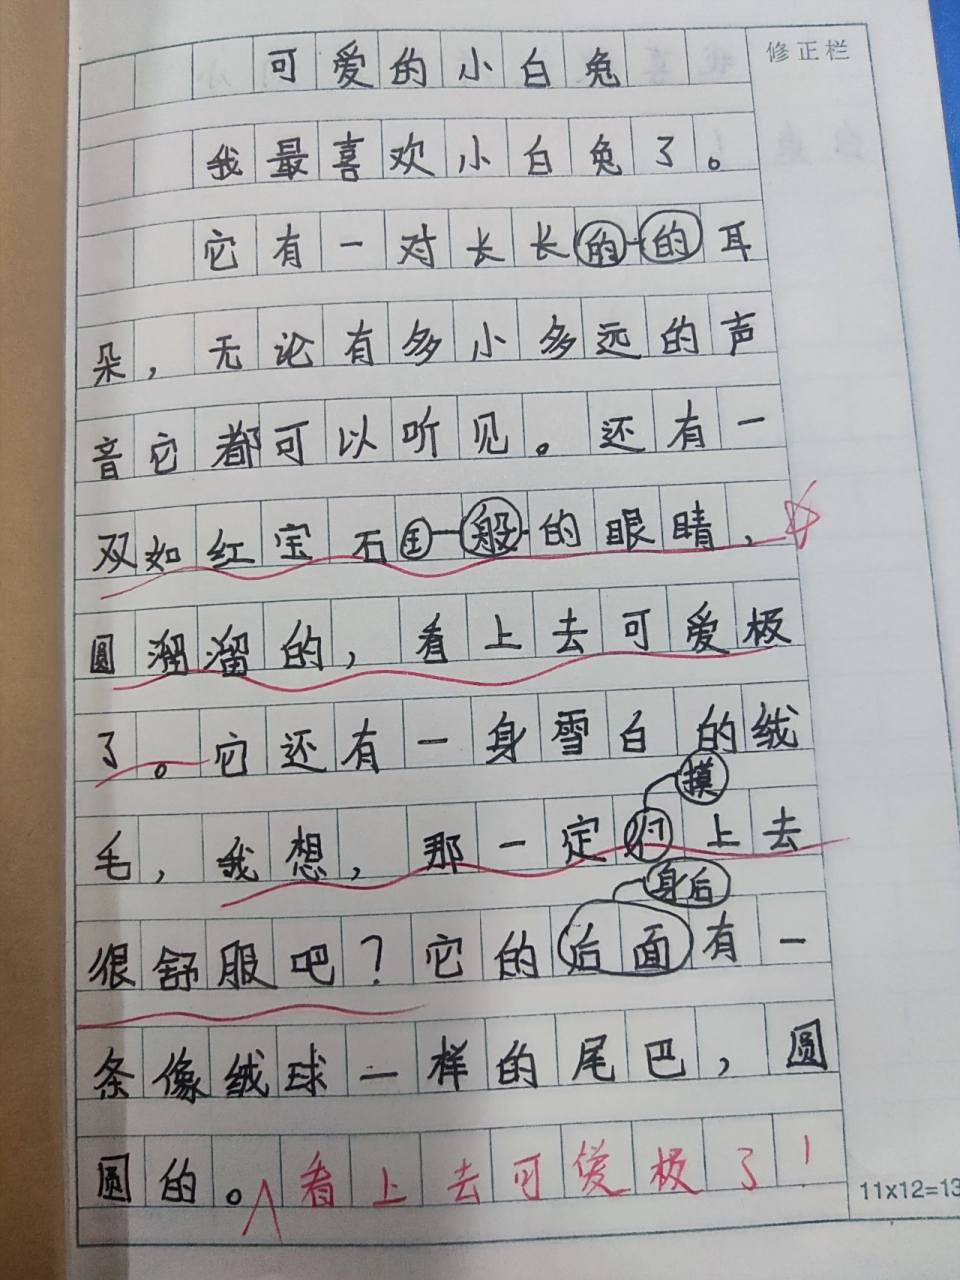 可爱的小白兔
修正栏
我最喜欢小白兔了。
它有一对长长的的耳
朵,无论有多小多远的声
音它都可以听见。还有一
双如红宝石般的眼睛,
圆溜溜的,看上去可爱极
了。它还有一身雪白的绒
摸
毛,我想,那一定上去
身后
很舒服吧?它的后面有一
条像绒球一样的尾巴,圆
圆的。看上去可爱极了!
11x12=13